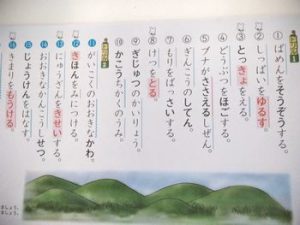 ① ばめんをそうぞうする。
② しっぱいをゆるす。
③ とっきょをえる。
④ どうぶつをほごする。
⑤ ブナがささえるしぜん。
⑥ ぎんこうのしてん。
⑦ もりをばっさいする。
⑧ けつをとる。
⑨ ぎじゅつのかいりょう。
⑩ かこうちかくのうみ。
⑪ がいこくのおおきなかわ。
⑫ きほんをみにつける。
⑬ にゅうざんをきせいする。
⑭ おおきなかんこうしせつ。
⑮ じょうけんをはなす。
⑯ きまりをもうける。
ましょう。
ましょう。